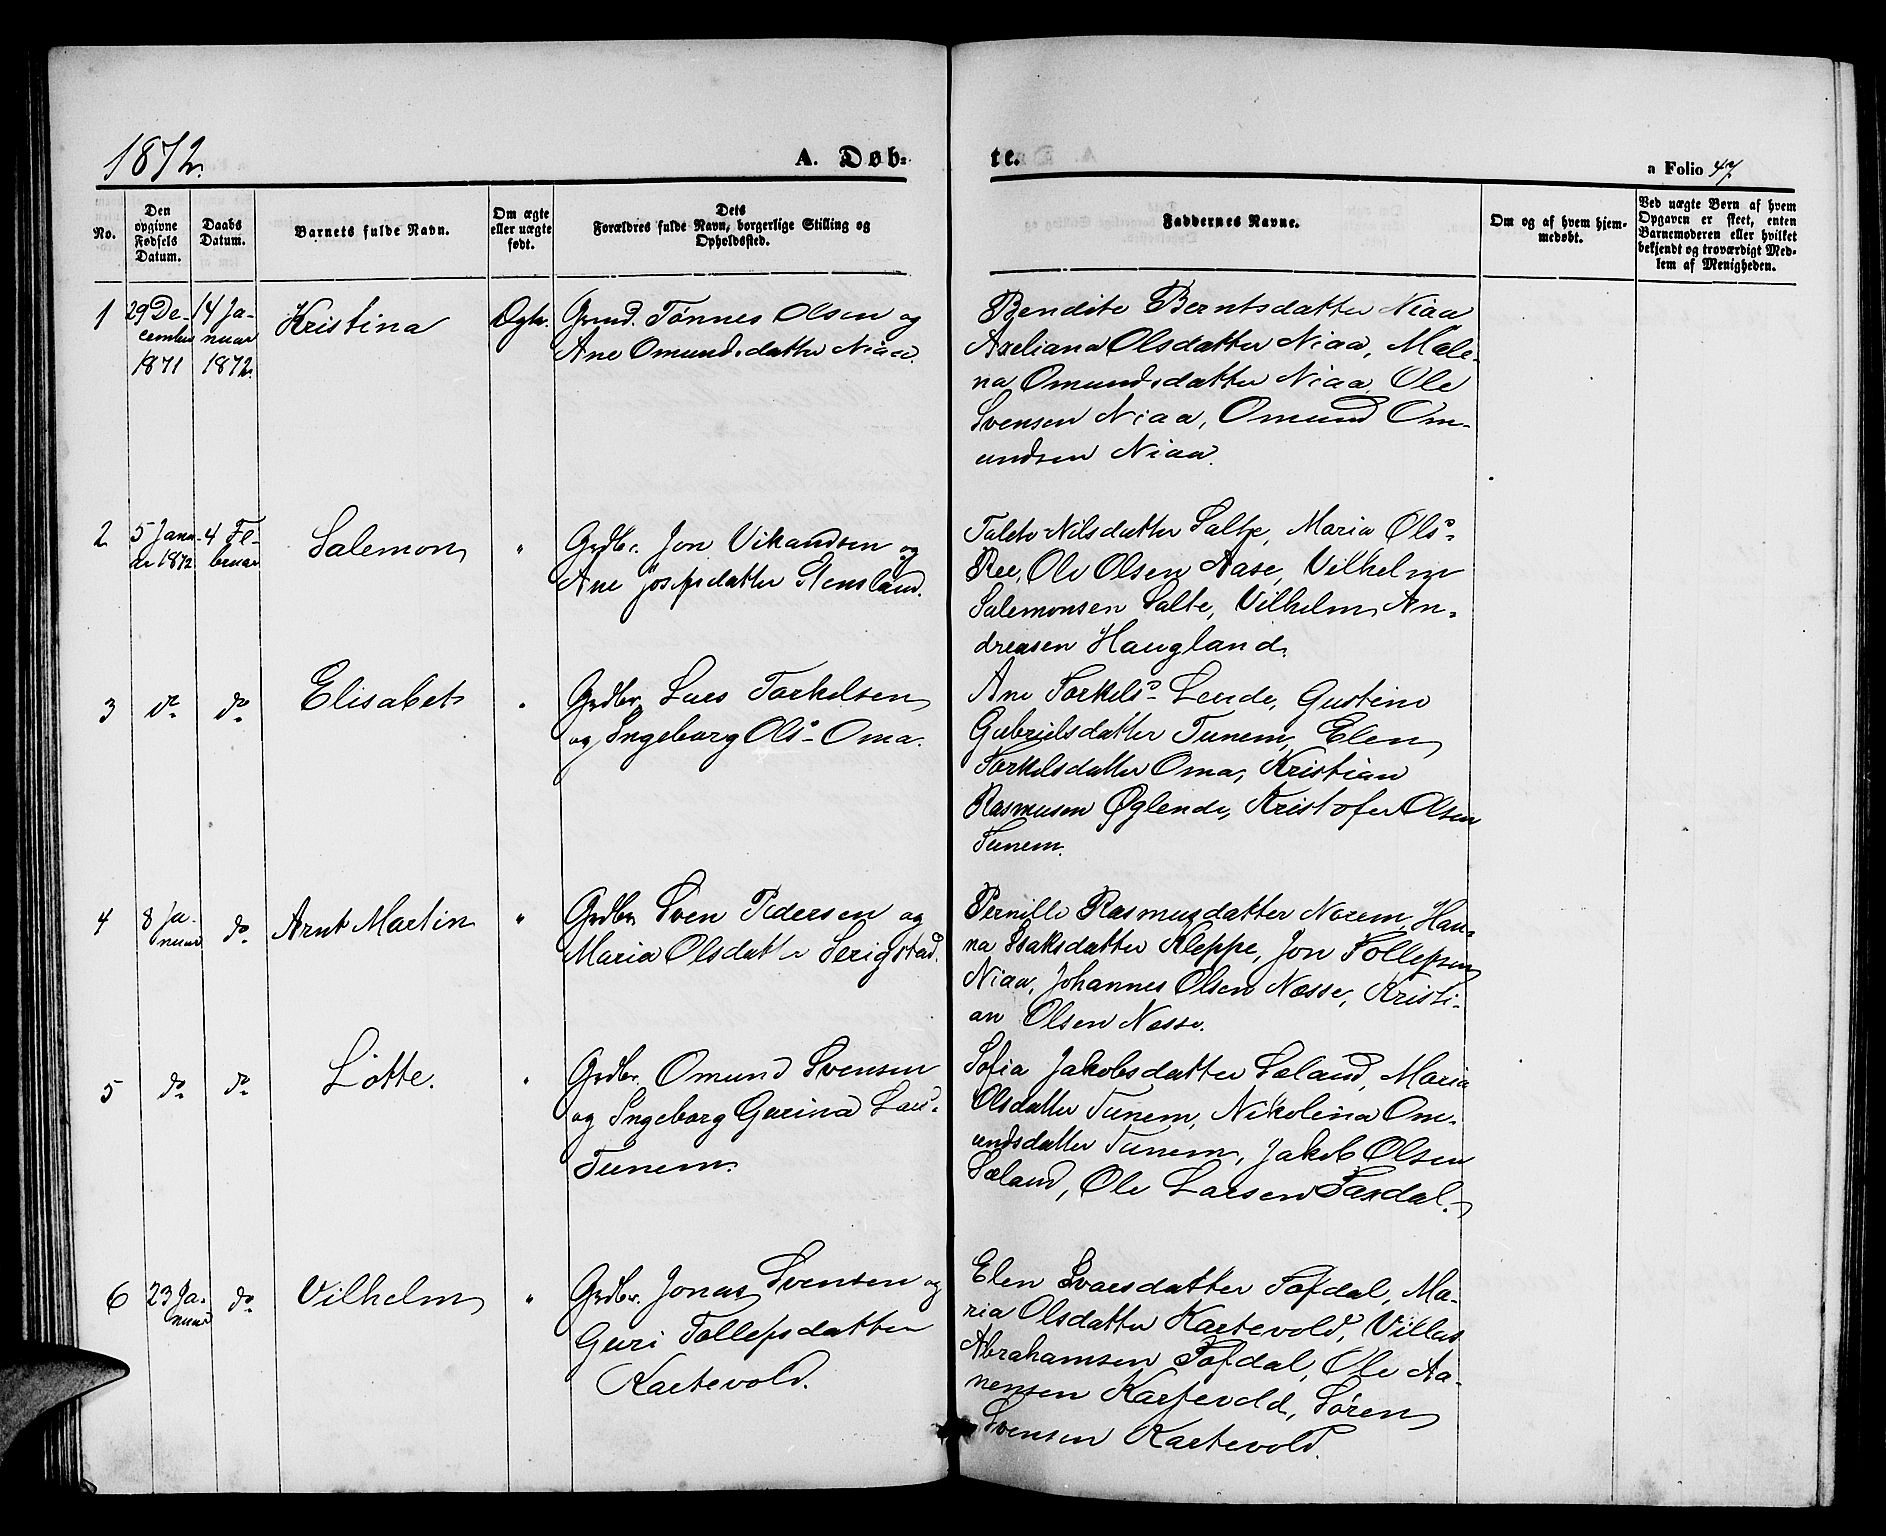 1872.
A. Døb-
te.
a Folio 47
No.
Den
opgivne
Fødsels
Datum.
Daabs
Datum.
Barnets fulde Navn.
Om ægte
eller uægte
født.
Dets
Forældres fulde Navn, borgerlige Stilling og
Opholdssted.
Faddernes Navne.
Om og af hvem hjem-
medøbt.
Ved uægte Børn af hvem
Opgaven er skeet, enten
Barnemoderen eller hvilket
bekjendt og troværdigt Med-
lem af Menigheden.
1
29 De-
cember
1871
14 Ja-
nuar
1872.
Kristina
Ægte.
Tønnes Olsen og
Ane Omundsdatter Niaa.
Bendite Berntsdatter Niaa
Axeliana Olsdatter Niaa, Male-
na Omundsdatter Niaa, Ole
Svensen Niaa, Omund Om-
undsen Niaa.
2
5 Janu-
ar 1872
4 Fe-
bruar
Salemon
"
Grdbr. Jon Vikandsen og
Ane Josepsdatter Stensland.
Nilsdatter Salte, Maria Ols-
Ree, Ole Olsen Aase, Vilhelm
Salemonsen Salte, Vilhelm An-
dreasen Haugland.
3
do
do
Elisabet
"
Grdbr. Lars Torkelsen
og Ingeborg Ols- Oma.
Ane Torkels- Lende, Gustine
Gabrielsdatter Tunem, Elen
Torkelsdatter Oma, Kristian
Rasmusen Øglende, Kristofer Olsen
Tunem.
4
8 Ja-
nuar
do
Arnt Martin
"
Grdbr. Sven Pedersen og
Maria Olsdatter Serigstad.
Pernille Rasmusdatter Norem, Han-
na Isaksdatter Kleppe, Jon Tollepsen
Niaa, Johannes Olsen Nesse, Kristi-
an Olsen Nesse.
5
do
do
Lotte.
"
Grdbr. Omund Svensen
og Ingeborg Gurina Lars-
Tunem.
Sofia Jakobsdatter Sæland, Maria
Olsdatter Tunem, Nikolina Om-
undsdatter Tunem, Jakob Olsen
Sæland, Ole Larsen
6
23 Ja-
nuar
do
Vilhelm
"
Grdbr. Jonas Svensen og
Guri Tollepsdatter
Kartevold.
Elen Ivarsdatter Tofdal, Ma-
ria Olsdatter Kartevold, Villas
Abrahamsen Tofdal, Ole Aa-
nensen Kartevold, Søren
Svensen Kartevold.